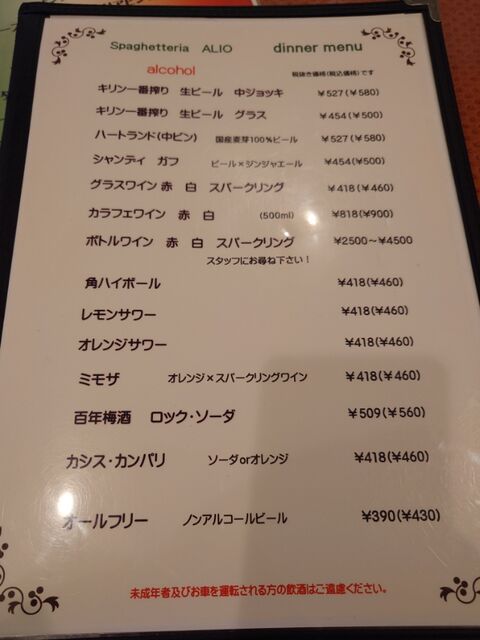 Spaghetteria ALIO dinner menu
alcohol 税抜き価格(税込価格)です
キリン一番搾り 生ビール 中ジョッキ ¥527(¥580)
キリン一番搾り 生ビール グラス ¥454(¥500)
ハートランド(中ビン) 国産麦芽100%ビール ¥527(¥580)
シャンディ ガフ ビール×ジンジャエール ¥454(¥500)
グラスワイン 赤 白 スパークリング ¥418(¥460)
カラフェワイン 赤 白 (500ml) ¥818(¥900)
ボトルワイン 赤 白 スパークリング ¥2500～¥4500
スタッフにお尋ね下さい！
角ハイボール ¥418(¥460)
レモンサワー ¥418(¥460)
オレンジサワー ¥418(¥460)
ミモザ オレンジ×スパークリングワイン ¥418(¥460)
百年梅酒 ロック・ソーダ ¥509(¥560)
カシス・カンパリ ソーダorオレンジ ¥418(¥460)
オールフリー ノンアルコールビール ¥390(¥430)
未成年者及びお車を運転される方の飲酒はご遠慮ください。